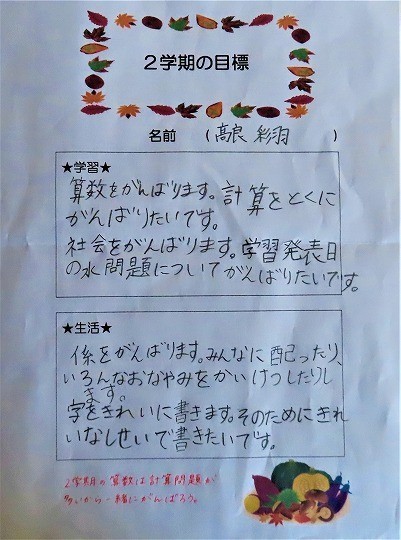 2学期の目標
名前 (高良 彩羽 )
★学習★
算数をがんばります。計算をとくに
がんばりたいです。
社会をがんばります。学習発表日
の水問題についてがんばりたいです。
★生活★
係をがんばります。みんなに配ったり、
いろんなおなやみをかいけつしたりし
ます。
字をきれいに書きます。そのためにきれ
いなしせいで書きたいです。
2学期の算数は計算問題が
多いから一緒にがんばろう。